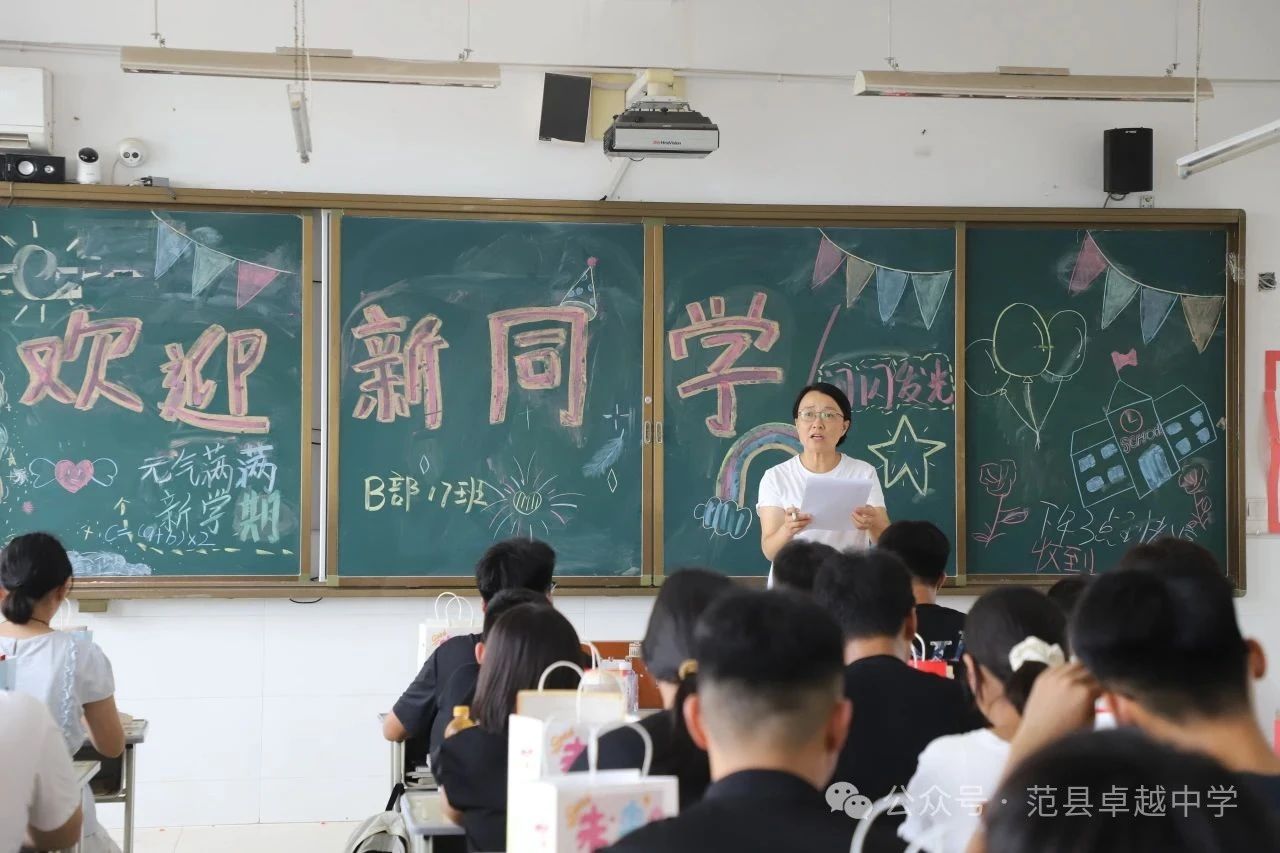 欢迎
新同学
闪闪发光
元气满满
新学期
C=(a+b)×2
B部17班
SCHOOL
收到
HikVision
公众号·范县卓越中学